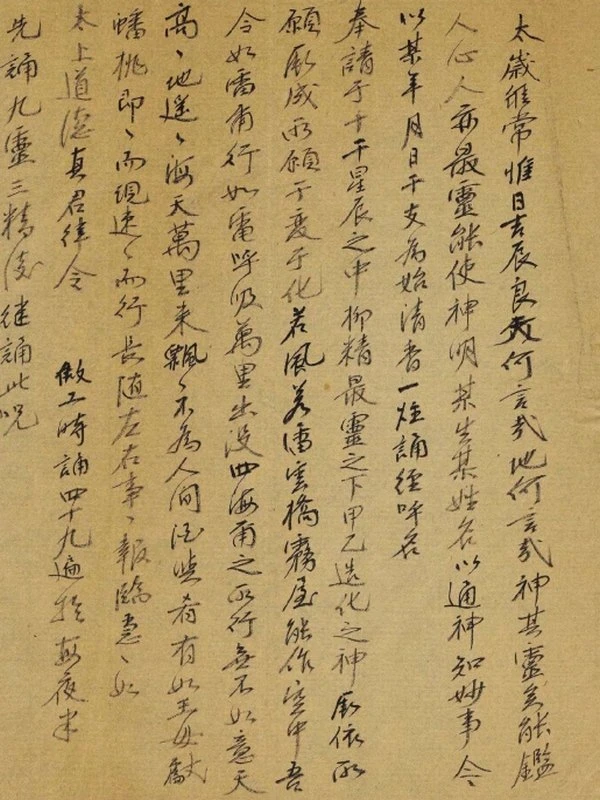 太歲經常惟日吉辰良天何言哉地何言哉神其靈矣能鑑
人心人亦最靈能使神明某生某姓名以通神知妙事今
以某年月日干支為始清香一炷誦經呼名
奉請于十干星辰之中柳精最靈之下甲乙造化之神厥依所
願厥成所願千変千化若風若潘雲橋霧屋能作空中吾
令如雷甫行如電呼吸萬里出沒四海爾之所行無不如意天
高〻地遥〻海天萬里来飄〻不為人间酒與肴有如王母献
蟠桃即〻而現速〻而行長随左右事〻報臨急〻如
太上道德真君律令 做工時誦四十九遍於每夜半
先誦九靈三精後継誦此咒